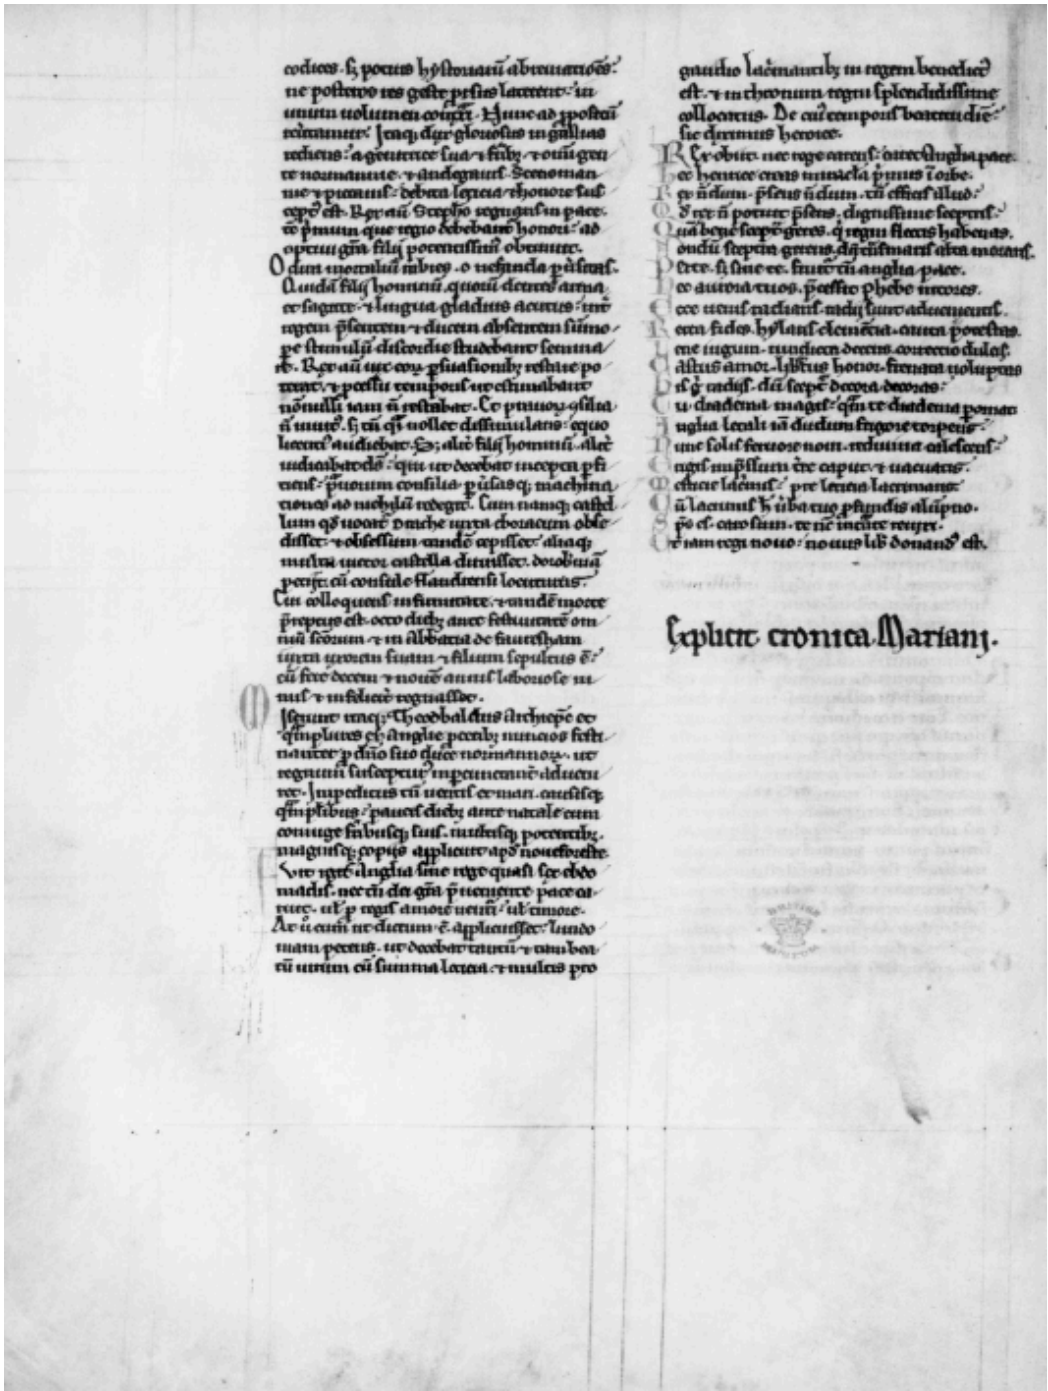 codices. sꝫ potius hystoriarū abreuiatiōes:
ne posteros res geste prorsus laterent: in
unum uolumen
Nunc ad ꝓpositū
Itaqꝫ dux gloriosus in gallias
rediens: a genitrice sua ⁊ fr̄ibꝫ ⁊ omni gen
te normannie. ⁊ andegauis. Scenoman
nie ⁊ pictauis: debita leticia ⁊ honore sus
ceptꝰ est. Rex aū Stephꝰ regnans in pace.
ꝑ te primum que regio debebant̄ honori: ad
optiui gr̄a filij potentissimi obtinuit.
O dira mortaliū rabies. o nefanda ꝑuersitas.
Quidā filij hominū quorū dentes arma
et sagitte. ⁊ lingua gladius acutus: int̄
regem p̄sentem ⁊ ducem absentem sūmo
ꝑe stimulū discordie studebant semina
re. Rex aū uix eoꝝ ꝑsuasionibꝫ restare po
terat. ⁊ ꝓcessu temporis ut estimabant
nōnulli iam n̄ restabat. Et prauoꝝ ɔsilia
n̄ inuitꝰ. sꝫ tū q̄si nollet dissimulans: equo
licentiꝰ audiebat. Sꝫ alit̄ filij hominū. alit̄
iudicabat dēs: qui ut decebat incepta ꝑfi
ciens: prauorum consilia ꝑuersasqꝫ machina
tiones ad nichilū redegit. Cum namqꝫ castel
lum qd̄ uocat̄ Drache iuxta eboracum obse
disset. ⁊ obsessum tandē cepisset. aliaqꝫ
multa uictor castella diruisset. dorob̄niā
petijt. cū consule flandrensi locuturus.
Cui colloquens infirmitate. ⁊ tandē morte
p̄reptus est. octo diebꝫ ante festiuitatē om
niū sc̄orum ⁊ in abbatia de fauresham
iuxta uxorem suam ⁊ filium sepultus ē:
cū fere decem ⁊ nouē annis laboriose ni
mis ⁊ infelicit̄ regnasset.
Miserunt itaqꝫ Theodbaldus Archiepc̄ et
q̄mplures ex anglie potentibꝫ nuncios festi
nanter ꝓ dn̄o suo duce normannoꝝ. ut
regnum suscepturꝰ inꝑcunctant̄ adueni
ret. Impeditus tū uentis et mari. causisqꝫ
q̄mpl̄ibus: paucis diebꝫ ante natale cum
coniuge fr̄ibusqꝫ suis. multisqꝫ potentibꝫ.
magnisqꝫ copijs applicuit apd̄ noueforeste.
Fuit igit̄ Anglia sine rege quasi sex ebdo
madis. nec tū dei gr̄a p̄ueniente pace ca
ruit. ul̄ ꝓ regis amore uenturi: ul̄ timore.
At ů cum ut dictum ē. applicuisset: lundo
niam petens. ut decebat tantū ⁊ tam bea
tū uirum cū summa leticia. ⁊ multis pro
gaudio lacrimantibꝫ in regem benedictꝰ
est. ⁊ in thronum regni splendidissime
collocatus. De cuiꝰ temporis beatitudīe:
sic diximus heroice.
Rex obiit. nec rege carens: caret Anglia pace.
Hec henrice creas miracl̄a primus ī orbe.
Rex n̄dum. p̄sens n̄dum. tū efficis illud:
Qd̄ rex n̄ potuit p̄sens. dignissime sceptris:
Quā bene sceptr̄ geres. q̇ regni flectis habenas.
Nondū sceptra gerens. dū tn̄ maris alta moraris.
Perte. sꝫ sine te. fruit̄ cū anglia pace.
Hec aurora tuos. p̄cessit phebe nitores.
Ecce uenis radians. radij sunt aduenientis.
Recta fides. hylaris clementia. cauta potestas.
Lene iugum. uindicta decens. correctio dulcis.
Castus amor. libratus honor. frenata uoluptas
His ḡ radijs. dū sceptr̄ decora decoras:
Tu diadema magis: q̄m te diadema ꝑornat
Anglia letali iā dudum frigore torpens:
Nunc solis feruore noui. rediuiua calescens:
Erigis imp̄ssum t̄re caput. ⁊ uacuatis.
Mesticie lacrimis: pre leticia lacrimaris.
Cū lacrimis h̄ uerba tuo ꝓfundis alūpno.
Sp̄s es. caro sum. te nc̄ int̄nte reuixi.
Et iam regi nouo: nouus lib̄ donandꝰ est.
Explicit cronica Mariani.
BRITISH
MUSEUM